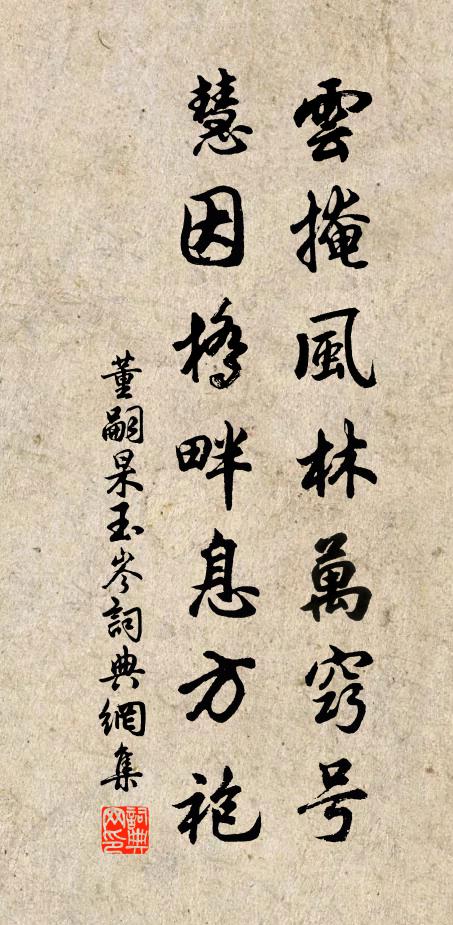 雲掩風林萬竅号
慧因橋畔息方袍
董嗣杲玉岑詞典網集
詞典網印